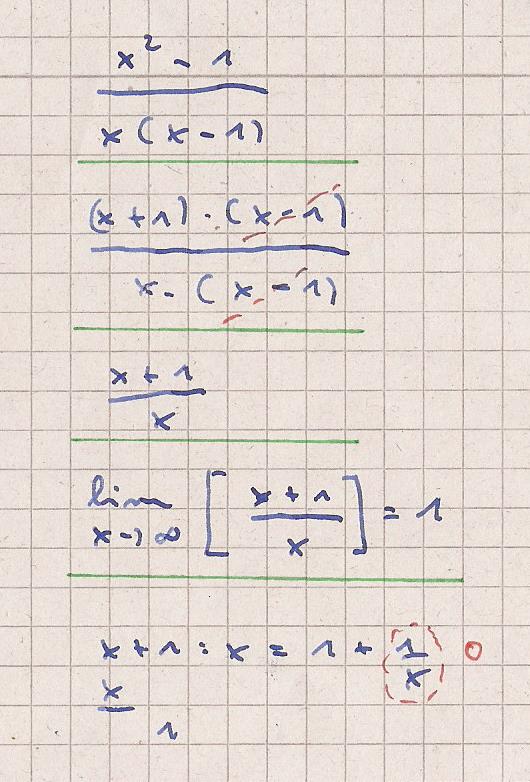 x² - 1
x (x - 1)
(x + 1) · (x - 1)
x · (x - 1)
x + 1
x
lim [ x + 1 ] = 1
x → ∞ x
x + 1 : x = 1 + 1/x 0
x
1